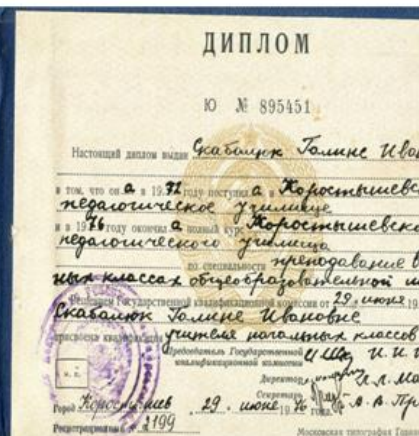 ДИПЛОМ
Ю № 895451
Настоящий диплом выдан Скабалюк Галине Ива
в том, что он а в 1972 году поступил а в Коростышевс
педагогическое училище
и в 1976 году окончил а полный курс Коростышевско
педагогического училища
по специальности преподавание в
ных классах общеобразовательной
Решением Государственной квалификационной комиссии от 29 июня 19
Скабалюк Галине Ивановне
присвоена квалификация учителя начальных классов
Председатель Государственной
квалификационной комиссии
Директор
Секретарь
Город Коростышев 29 июня 1976 года.
Регистрационный 2199
Московская типография